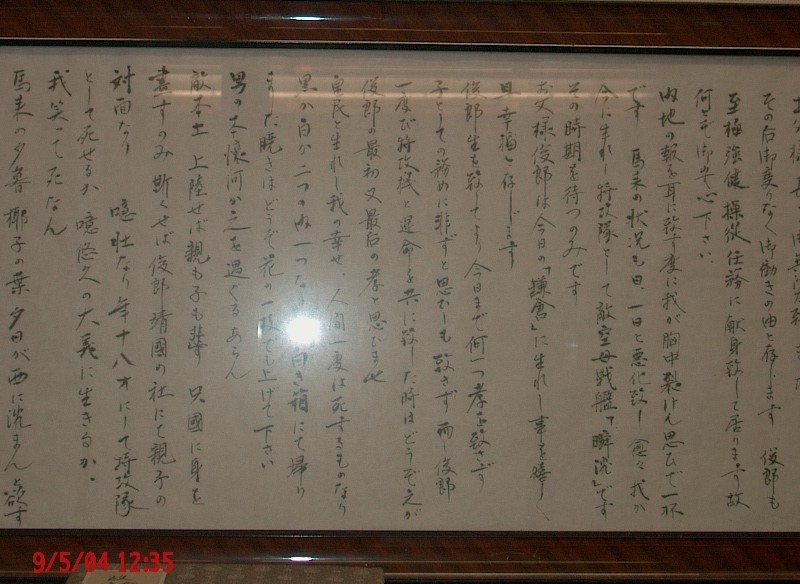 その后御変りなく御働きの由と存じます 俊郎も
至極強健 操従任務に献身致して居ります故
何とぞ御安心下さい、
内地の報を耳に致す度に我が胸中裂けん思ひで一杯
です 馬来の状況も日、一日と悪化致し 愈々我が
今に生れし特攻隊として敵空母戦艦「瞬沈」です
その時期を待つのみです
お父様俊郎は今日の「鎌倉」に生れし事を嬉しく
且幸福と存じます
俊郎 生を致してより今日まで何一つ孝を致さず
子としての務めに非ずと思ひしも 致さず 而し俊郎
一度び特攻機と運命を共に致した時はどうぞ之が
俊郎の最初又最后の孝と思ひませ
皇民と生れし我の幸せ、人間一度は死するものなり
黒か白か二つの内 一つなり 白き箱にて帰り
ました暁きはどうぞ花の一枝でも上げて下さい
男の本懐何か之を過ぐるあらん
敵本土 上陸せば親も子も 只國に身を
盡すのみ 斯くせば俊郎靖國の社にて親子の
対面なり 噫壮なり 年十八才にして特攻隊
として死せるか 噫悠久の大義に生きるか。
我笑って死なん
馬来の夕暮 椰子の葉 夕日が西に沈まんと欲す
9/5/04 12:35